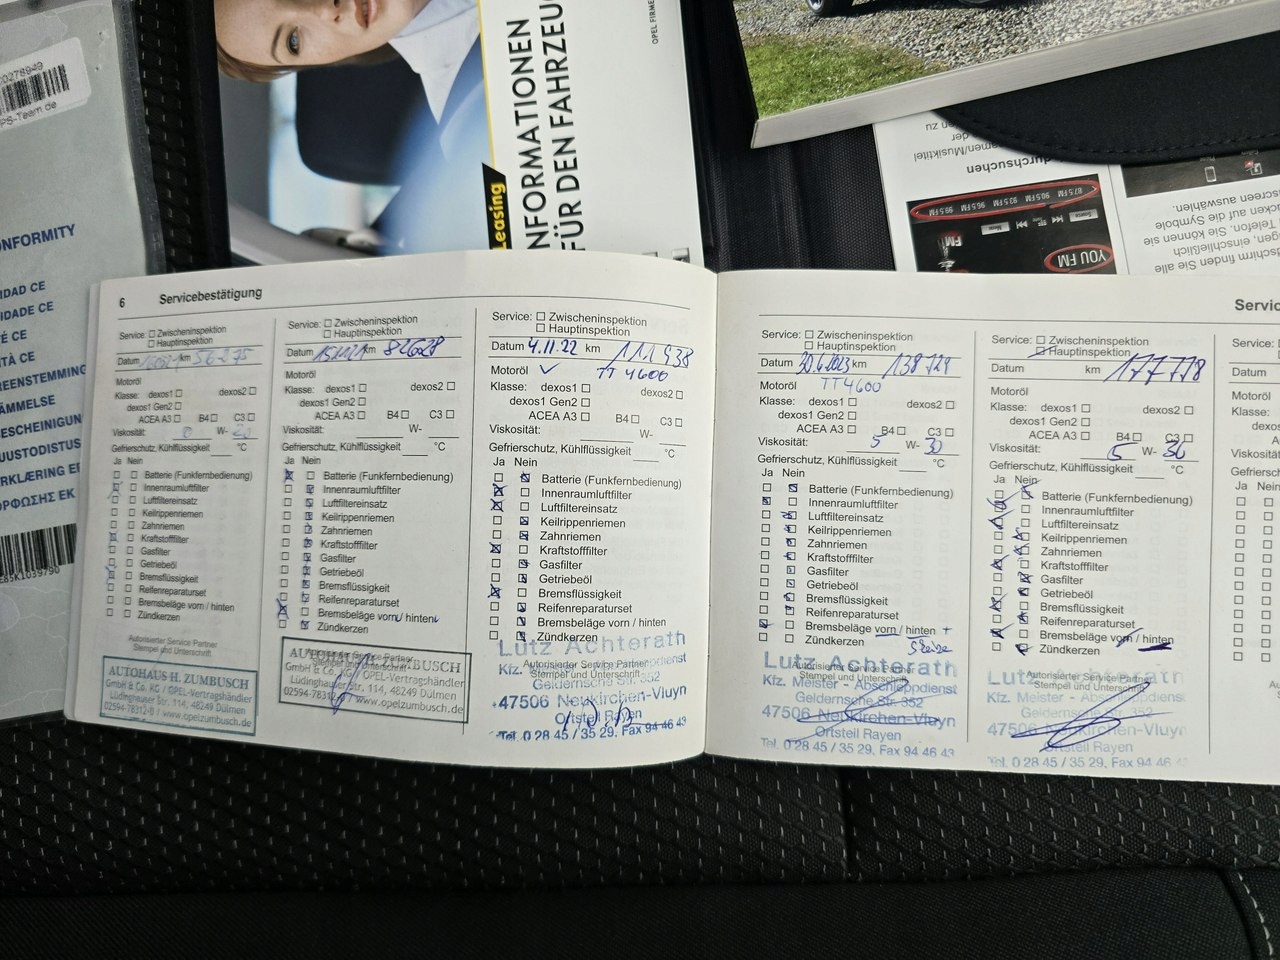 INFORMATIONEN
FÜR DEN FAHRZEU
Leasing
OPEL FIRME
PS-Team.de
ONFORMITY
IDAD CE
IDADE CE
TÉ CE
ITÀ CE
REENSTEMMING
ÄMMELSE
ESCHEINIGUN
UUSTODISTUS
RKLÆRING EF
ΟΡΦΩΣΗΣ ΕΚ
durchsuchen
YOU FM
FM
87.5 FM 90.5 FM 93.5 FM 96.5 FM 99.5 FM
screen auswählen.
cken auf die Symbole
Telefon. Sie können sie
gen, einschließlich
dschirm finden Sie alle
6 Servicebestätigung
Service: Zwischeninspektion
Hauptinspektion
Datum km 56275
Motoröl
Klasse: dexos1 dexos2
dexos1 Gen2
ACEA A3 B4 C3
Viskosität: 0 W-
Gefrierschutz, Kühlflüssigkeit °C
Ja Nein
Batterie (Funkfernbedienung)
Innenraumluftfilter
Luftfiltereinsatz
Keilrippenriemen
Zahnriemen
Kraftstofffilter
Gasfilter
Getriebeöl
Bremsflüssigkeit
Reifenreparaturset
Bremsbeläge vorn / hinten
Zündkerzen
Autorisierter Service Partner
Stempel und Unterschrift
AUTOHAUS H. ZUMBUSCH
GmbH & Co. KG / OPEL-Vertragshändler
Lüdinghauser Str. 114, 48249 Dülmen
02594-78312-0 / www.opelzumbusch.de
Service: Zwischeninspektion
Hauptinspektion
Datum km 82628
Motoröl
Klasse: dexos1 dexos2
dexos1 Gen2
ACEA A3 B4 C3
Viskosität: W-
Gefrierschutz, Kühlflüssigkeit °C
Ja Nein
Batterie (Funkfernbedienung)
Innenraumluftfilter
Luftfiltereinsatz
Keilrippenriemen
Zahnriemen
Kraftstofffilter
Gasfilter
Getriebeöl
Bremsflüssigkeit
Reifenreparaturset
Bremsbeläge vorn / hinten
Zündkerzen
Autorisierter Service Partner
Stempel und Unterschrift
AUTOHAUS H. ZUMBUSCH
GmbH & Co. KG / OPEL-Vertragshändler
Lüdinghauser Str. 114, 48249 Dülmen
02594-78312 / www.opelzumbusch.de
Service: Zwischeninspektion
Hauptinspektion
Datum 4.11.22 km 111938
Motoröl TT 4600
Klasse: dexos1 dexos2
dexos1 Gen2
ACEA A3 B4 C3
Viskosität: W-
Gefrierschutz, Kühlflüssigkeit °C
Ja Nein
Batterie (Funkfernbedienung)
Innenraumluftfilter
Luftfiltereinsatz
Keilrippenriemen
Zahnriemen
Kraftstofffilter
Gasfilter
Getriebeöl
Bremsflüssigkeit
Reifenreparaturset
Bremsbeläge vorn / hinten
Zündkerzen
Autorisierter Service Partner
Stempel und Unterschrift
Lutz Achterath
Kfz. Meister - Abschleppdienst
Geldernsche Str. 352
47506 Neukirchen-Vluyn
Ortsteil Rayen
Tel. 0 28 45 / 35 29, Fax 94 46 43
Servic
Service: Zwischeninspektion
Hauptinspektion
Datum 20.6.2023 km 138729
Motoröl TT4600
Klasse: dexos1 dexos2
dexos1 Gen2
ACEA A3 B4 C3
Viskosität: 5 W- 30
Gefrierschutz, Kühlflüssigkeit °C
Ja Nein
Batterie (Funkfernbedienung)
Innenraumluftfilter
Luftfiltereinsatz
Keilrippenriemen
Zahnriemen
Kraftstofffilter
Gasfilter
Getriebeöl
Bremsflüssigkeit
Reifenreparaturset
Bremsbeläge vorn / hinten +
Zündkerzen
Autorisierter Service Partner
Stempel und Unterschrift
Lutz Achterath
Kfz. Meister - Abschleppdienst
Geldernsche Str. 352
47506 Neukirchen-Vluyn
Ortsteil Rayen
Tel. 0 28 45 / 35 29, Fax 94 46 43
Service: Zwischeninspektion
Hauptinspektion
Datum km 177778
Motoröl
Klasse: dexos1 dexos2
dexos1 Gen2
ACEA A3 B4 C3
Viskosität: 5 W- 30
Gefrierschutz, Kühlflüssigkeit °C
Ja Nein
Batterie (Funkfernbedienung)
Innenraumluftfilter
Luftfiltereinsatz
Keilrippenriemen
Zahnriemen
Kraftstofffilter
Gasfilter
Getriebeöl
Bremsflüssigkeit
Reifenreparaturset
Bremsbeläge vorn / hinten
Zündkerzen
Autorisierter Service Partner
Stempel und Unterschrift
Kfz. Meister - Abschleppdiens
Geldernsche Str. 352
47506 Neukirchen-Vluyn
Ortsteil Rayen
Tel. 0 28 45 / 35 29, Fax 94 46 4
Service:
Datum
Motoröl
Klasse:
Viskosität:
Gefriersch
Ja Nein